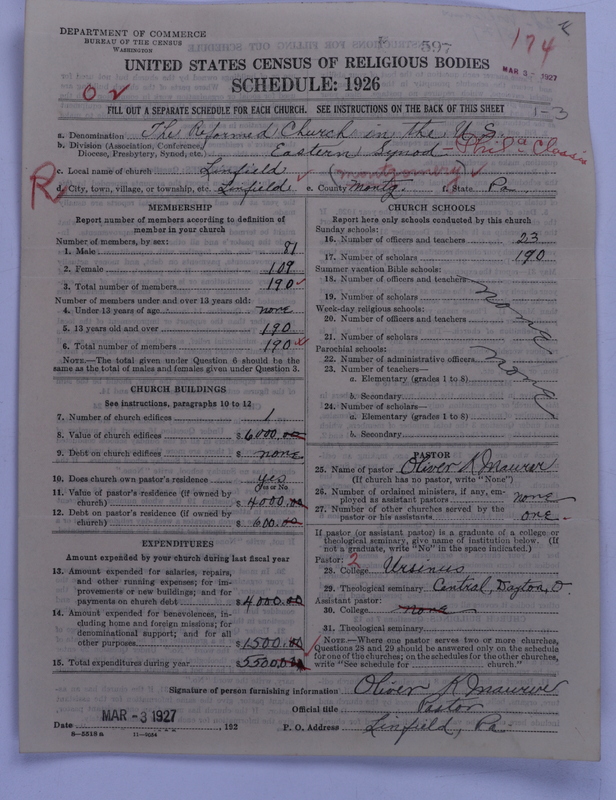 DEPARTMENT OF COMMERCE
BUREAU OF THE CENSUS
WASHINGTON
597
174
MAR 3 - 1927
UNITED STATES CENSUS OF RELIGIOUS BODIES
SCHEDULE: 1926
FILL OUT A SEPARATE SCHEDULE FOR EACH CHURCH. SEE INSTRUCTIONS ON THE BACK OF THIS SHEET
1-3
a. Denomination The Reformed Church in the U.S.
b. Division (Association, Conference, Diocese, Presbytery, Synod, etc.) Eastern Synod - Phil'a Classis
c. Local name of church Linfield (montgomery)
d. City, town, village, or township, etc. Linfield e. County Montg. f. State Pa
R
MEMBERSHIP
Report number of members according to definition of
member in your church
Number of members, by sex:
1. Male 81
2. Female 109
3. Total number of members 190
Number of members under and over 13 years old:
4. Under 13 years of age none
5. 13 years old and over 190
6. Total number of members 190
NOTE.—The total given under Question 6 should be
same as the total of males and females given under Question 3.
CHURCH BUILDINGS
See instructions, paragraphs 10 to 12
7. Number of church edifices 1
8. Value of church edifices $6000.00
9. Debt on church edifices $ none
10. Does church own pastor's residence yes
Yes or No
11. Value of pastor's residence (if owned by
church) $4000.00
12. Debt on pastor's residence (if owned by
church) $ 600.00
EXPENDITURES
Amount expended by your church during last fiscal year
13. Amount expended for salaries, repairs,
and other running expenses; for im-
provements or new buildings; and for
payments on church debt $4000.00
14. Amount expended for benevolences, in-
cluding home and foreign missions; for
denominational support; and for all
other purposes $1500.00
15. Total expenditures during year $5500.00
CHURCH SCHOOLS
Report here only schools conducted by this church
Sunday schools:
16. Number of officers and teachers 23
17. Number of scholars 190
Summer vacation Bible schools:
18. Number of officers and teachers
19. Number of scholars
None
Week-day religious schools:
20. Number of officers and teachers
21. Number of scholars
Parochial schools:
22. Number of administrative officers
23. Number of teachers—
a. Elementary (grades 1 to 8)
None
b. Secondary
24. Number of scholars—
a. Elementary (grades 1 to 8)
b. Secondary
PASTOR
25. Name of pastor Oliver K Maurer
(If church has no pastor, write "None")
26. Number of ordained ministers, if any, em-
ployed as assistant pastors none
27. Number of other churches served by the
pastor or his assistants one
If pastor (or assistant pastor) is a graduate of a college or
theological seminary, give name of institution below. (If
not a graduate, write "No" in the space indicated.)
Pastor: 2
28. College Ursinus
29. Theological seminary Central, Dayton, O.
Assistant pastor:
30. College None
31. Theological seminary
NOTE.—Where one pastor serves two or more churches,
Questions 28 and 29 should be answered only on the schedule
for one of the churches; on the schedules for the other churches,
write "See schedule for church."
Signature of person furnishing information Oliver K Maurer
Official title Pastor
Date MAR - 3 1927, 192 P. O. Address Linfield, Pa
8-5518 a 11-9654